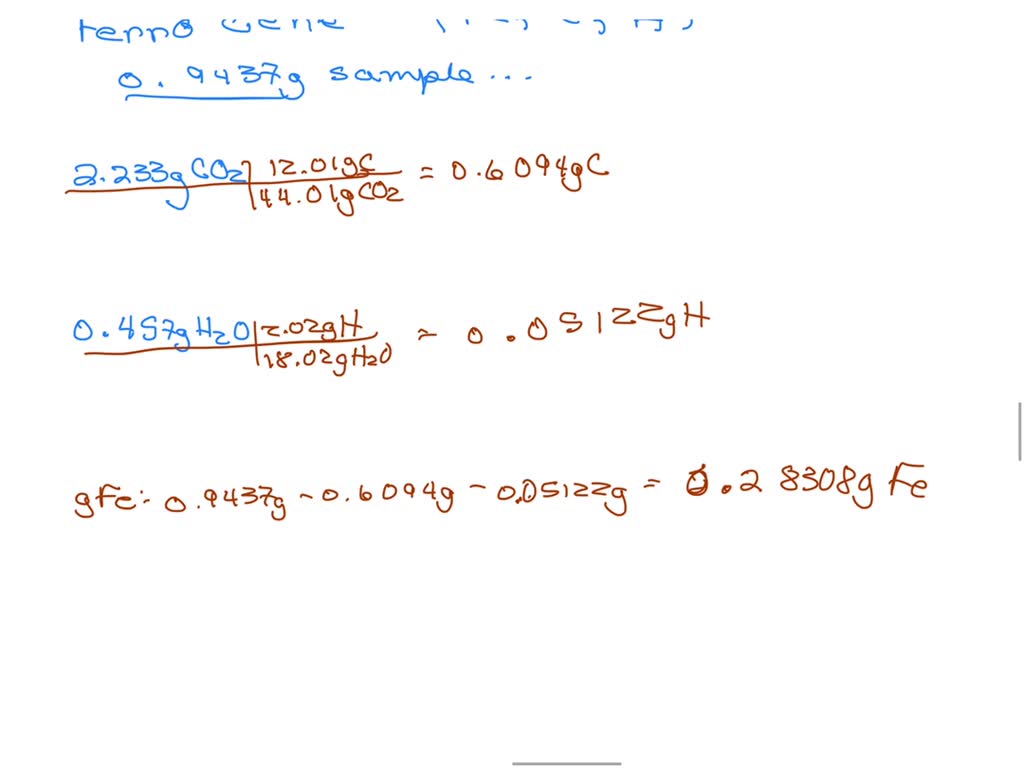 0.9437g sample...
2.233g CO2 | 12.01gC / 44.01gCO2 = 0.6094gC
0.457gH2O | 2.02gH / 18.02gH2O = 0.05122gH
gFe: 0.9437g - 0.6094g - 0.05122g = 0.28308g Fe